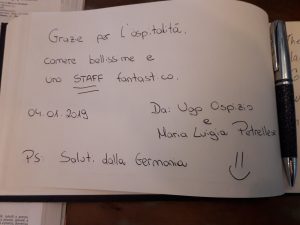 Grazie per l'ospitalità,
camere bellissime e
uno STAFF fantastico.
04.01.2019
Da: Ugo Ospizio
e
Maria Luigia Petrellese
PS: Saluti dalla Germania